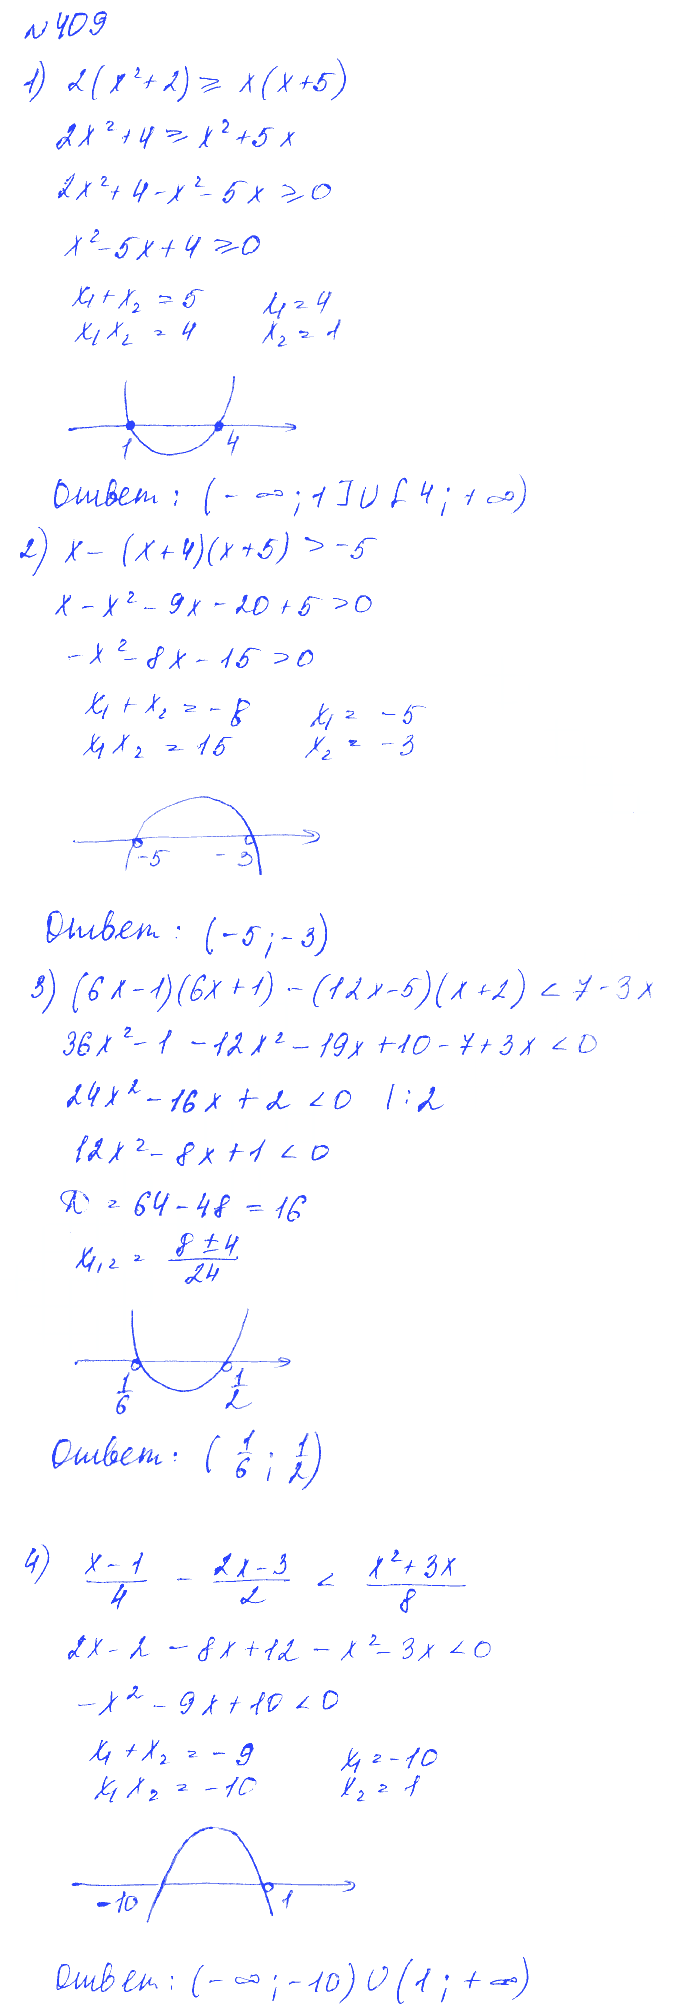 №409
1) 2(x²+2) ≥ x(x+5)
2x²+4 ≥ x²+5x
2x²+4-x²-5x ≥ 0
x²-5x+4 ≥ 0
x₁+x₂ = 5    x₁ = 4
x₁x₂ = 4    x₂ = 1
1 4
Ответ: (-∞; 1]∪[4; +∞)
2) x-(x+4)(x+5) > -5
x-x²-9x-20+5 > 0
-x²-8x-15 > 0
x₁+x₂ = -8    x₁ = -5
x₁x₂ = 15    x₂ = -3
-5 -3
Ответ: (-5; -3)
3) (6x-1)(6x+1)-(12x-5)(x+2) < 7-3x
36x²-1-12x²-19x+10-7+3x < 0
24x²-16x+2 < 0 |:2
12x²-8x+1 < 0
D = 64-48 = 16
x₁,₂ = (8±4)/24
1/6 1/2
Ответ: (1/6; 1/2)
4) (x-1)/4 - (2x-3)/2 < (x²+3x)/8
2x-2-8x+12-x²-3x < 0
-x²-9x+10 < 0
x₁+x₂ = -9    x₁ = -10
x₁x₂ = -10    x₂ = 1
-10 1
Ответ: (-∞; -10)∪(1; +∞)